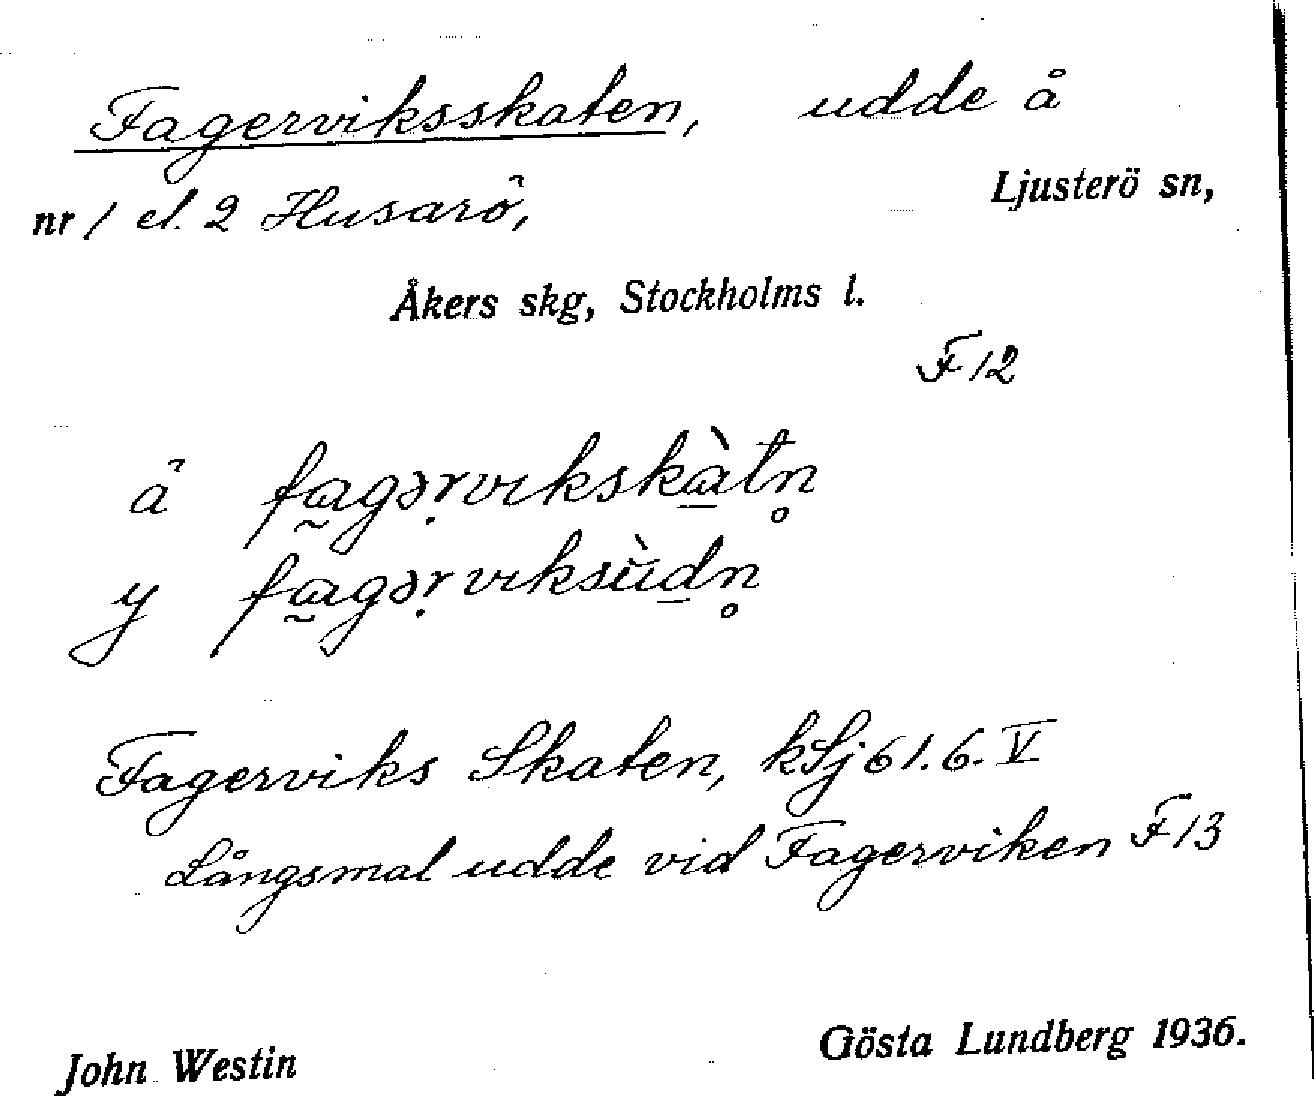 Fagerviksskaten, udde å
nr 1 el. 2 Husarö, Ljusterö sn,
Åkers skg, Stockholms l.
F 12
å fa̰gəṛvıkskà̠tn̥
y fa̰gəṛvıksùd̠n̥
Fagerviks Skaten, kSj 61.6.V
Långsmal udde vid Fagerviken F 13
John Westin Gösta Lundberg 1936.